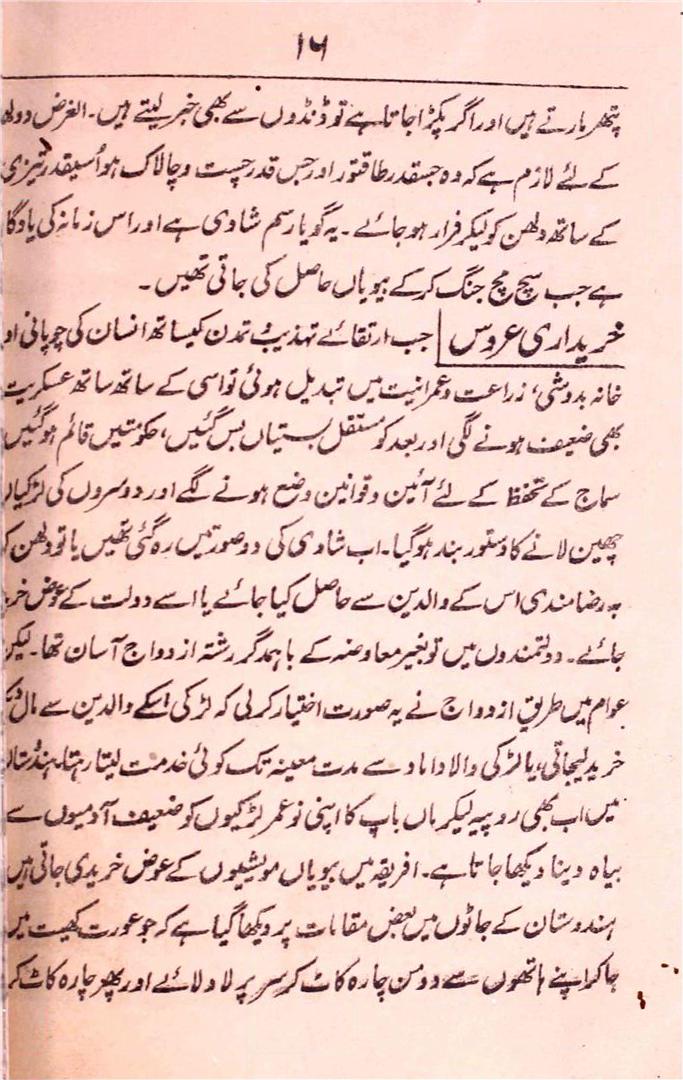 ۱۶
پتھر مارتے ہیں اور اگر پکڑا جاتا ہے تو ڈنڈوں سے بھی خبر لیتے ہیں۔ الغرض دولھ
کے لئے لازم ہے کہ وہ جسقدر طاقتور اور جس قدر چست و چالاک ہو اُسیقدر تیزی
کے ساتھ دلھن کو لیکر فرار ہو جائے۔ یہ گویا رسم شادی ہے اور اس زمانہ کی یادگا
ہے جب سچ مچ جنگ کر کے بیویاں حاصل کی جاتی تھیں۔
خریداری عروس | جب ارتقائے تہذیب و تمدن کیساتھ انسان کی چوپانی او
خانہ بدوشی، زراعت و عمرانیت میں تبدیل ہوئی تو اسی کے ساتھ ساتھ عسکریت
بھی ضعیف ہونے لگی اور بعد کو مستقل بستیاں بس گئیں، حکومتیں قائم ہو گئیں
سماج کے تحفظ کے لئے آئین و قوانین وضع ہونے لگے اور دوسروں کی لڑکیاں
چھین لانے کا دستور بند ہو گیا۔ اب شادی کی دو صورتیں رہ گئی تھیں یا تو دلھن کو
بہ رضامندی اس کے والدین سے حاصل کیا جائے یا اسے دولت کے عوض خرید
جائے۔ دولتمندوں میں تو بغیر معاوضہ کے باہمدگر رشتہ ازدواج آسان تھا۔ لیکن
عوام میں طریق ازدواج نے یہ صورت اختیار کر لی کہ لڑکی اسکے والدین سے مال دیکر
خرید لیجاتی، یا لڑکی والا داماد سے مدت معینہ تک کوئی خدمت لیتا رہتا۔ ہندُستان
میں اب بھی روپیہ لیکر ماں باپ کا اپنی نو عمر لڑکیوں کو ضعیف آدمیوں سے
بیاہ دینا دیکھا جاتا ہے۔ افریقہ میں بیویاں مویشیوں کے عوض خریدی جاتی ہیں
ہندوستان کے جاٹوں میں بعض مقامات پر دیکھا گیا ہے کہ جو عورت کھیت میں
جا کر اپنے ہاتھوں سے دو من چارہ کاٹ کر سر پر لاد لائے اور پھر چارہ کاٹ کر